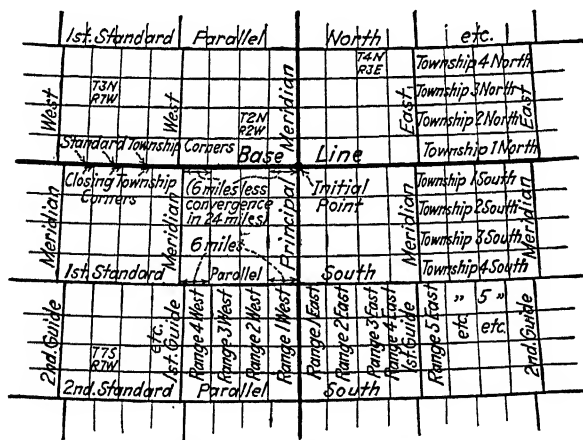 1st. Standard Parallel North etc.
T4N
R3E
Township 4 North
T3N
R7W
Township 3 North
T2N
R2W
Township 2 North
West West Meridian East East
Standard Township Corners Base Line Township 1 North
Closing Township
Corners
(6 miles less
convergence
in 24 miles)
Initial
Point
Township 1 South
Township 2 South
6 miles
Township 3 South
Township 4 South
Meridian Meridian Principal Meridian Meridian
1st. Standard Parallel South
2nd. Guide
etc.
1st. Guide
Range 4 West
Range 3 West
Range 2 West
Range 1 West
Range 1 East
Range 2 East
Range 3 East
Range 4 East
1st. Guide
Range 5 East
" 5 "
etc. etc.
2nd. Guide
T7S
R7W
2nd. Standard Parallel South